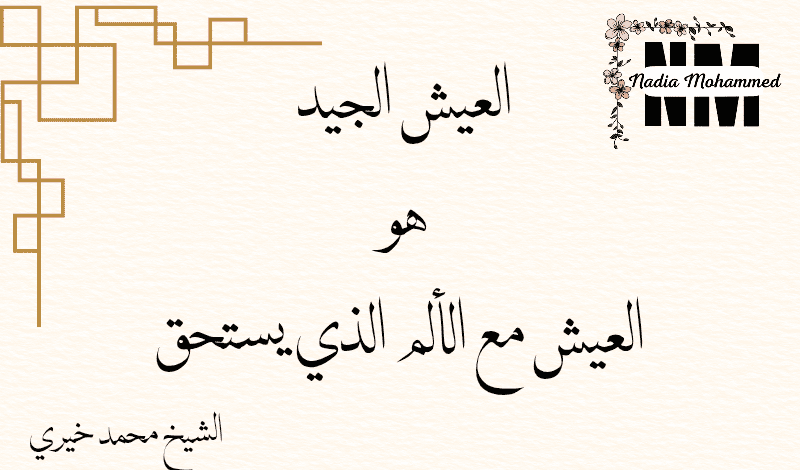 Nadia Mohammed
العيش الجيد
هو
العيش مع الألم الذي يستحق
الشيخ محمد خيري